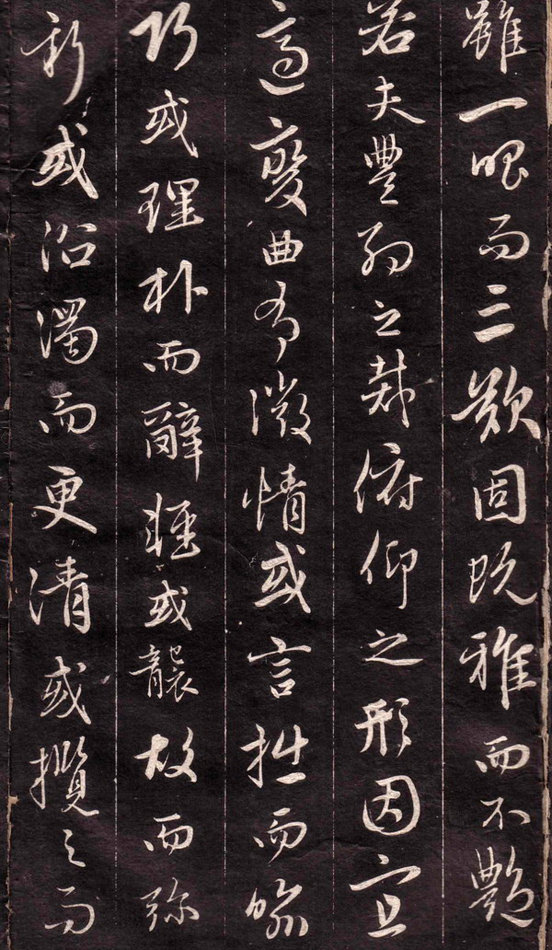 雖一唱而三歎固既雅而不艷
若夫豐約之裁俯仰之形因宜
適變曲有微情或言拙而喻
巧或理朴而辭輕或襲故而弥
新或沿濁而更清或攬之而